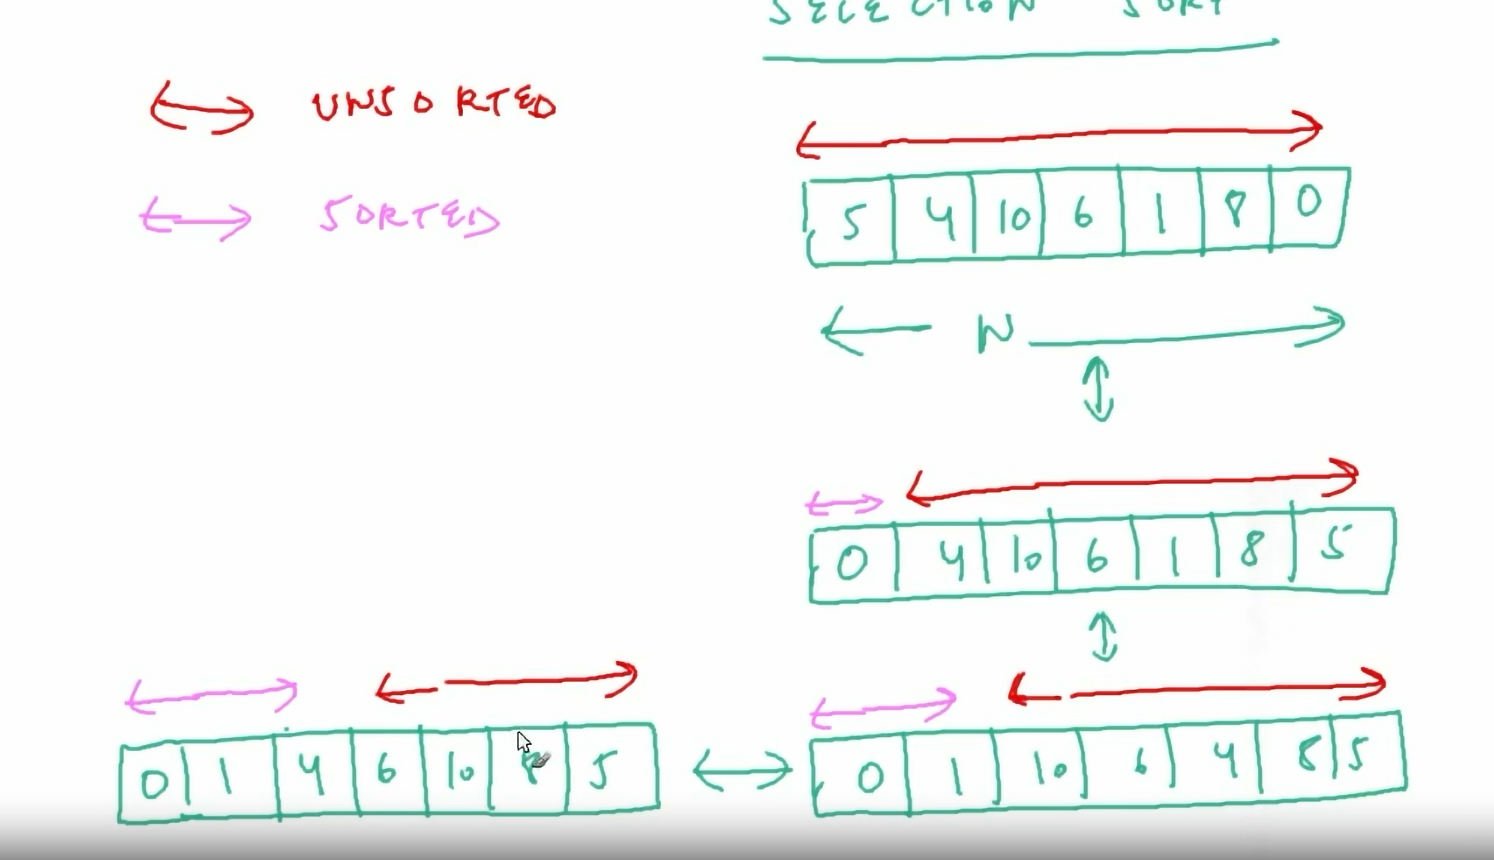 SELECTION SORT
UNSORTED
SORTED
5 4 10 6 1 8 0
N
0 4 10 6 1 8 5
0 1 4 6 10 8 5
0 1 10 6 4 8 5